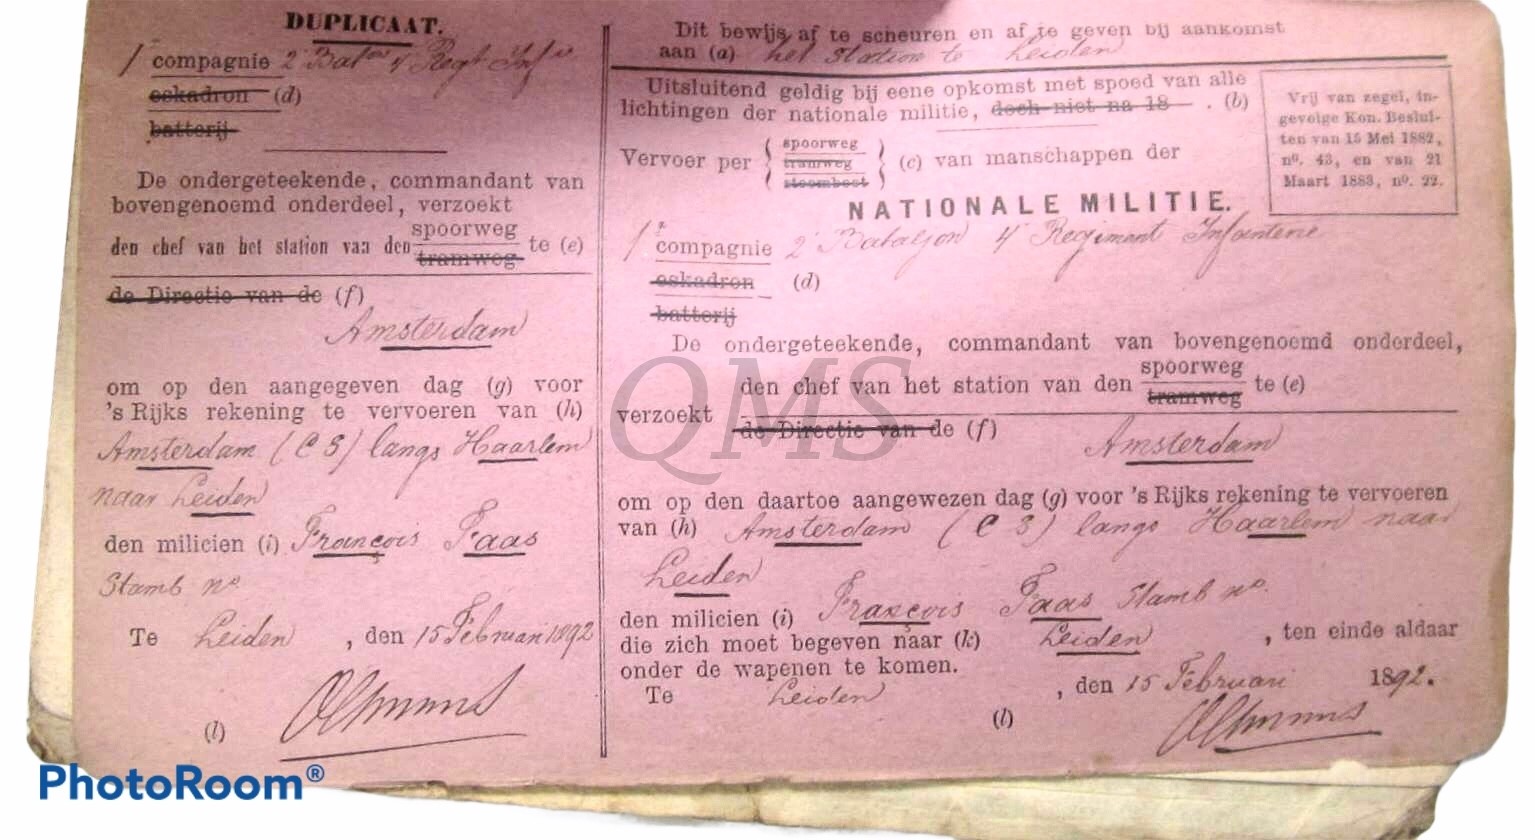 DUPLICAAT.
1e compagnie 2e Baton 4e Regt Infie
eskadron (d)
batterij
De ondergeteekende, commandant van
bovengenoemd onderdeel, verzoekt
den chef van het station van den spoorweg te (e)
tramweg
de Directie van de (f)
Amsterdam
om op den aangegeven dag (g) voor
's Rijks rekening te vervoeren van (h)
Amsterdam (C S) langs Haarlem
naar Leiden
den milicien (i) François Faas
Stamb no.
Te Leiden, den 15 Februari 1892
(l)
Dit bewijs af te scheuren en af te geven bij aankomst
aan (a) het Station te Leiden
Uitsluitend geldig bij eene opkomst met spoed van alle
lichtingen der nationale militie, doch niet na 18 . (b)
Vrij van zegel, in-
gevolge Kon. Beslui-
ten van 15 Mei 1882,
no. 43, en van 21
Maart 1883, no. 22.
spoorweg
Vervoer per { tramweg } (c) van manschappen der
stoomboot
NATIONALE MILITIE.
1e compagnie 2e Bataljon 4e Regiment Infanterie
eskadron (d)
batterij
De ondergeteekende, commandant van bovengenoemd onderdeel,
den chef van het station van den spoorweg te (e)
tramweg
verzoekt
de Directie van de (f) Amsterdam
om op den daartoe aangewezen dag (g) voor 's Rijks rekening te vervoeren
van (h) Amsterdam (C S) langs Haarlem naar
Leiden
den milicien (i) François Faas Stamb no.
die zich moet begeven naar (k) Leiden, ten einde aldaar
onder de wapenen te komen.
Te Leiden, den 15 Februari 1892.
(l)
QMS
PhotoRoom®